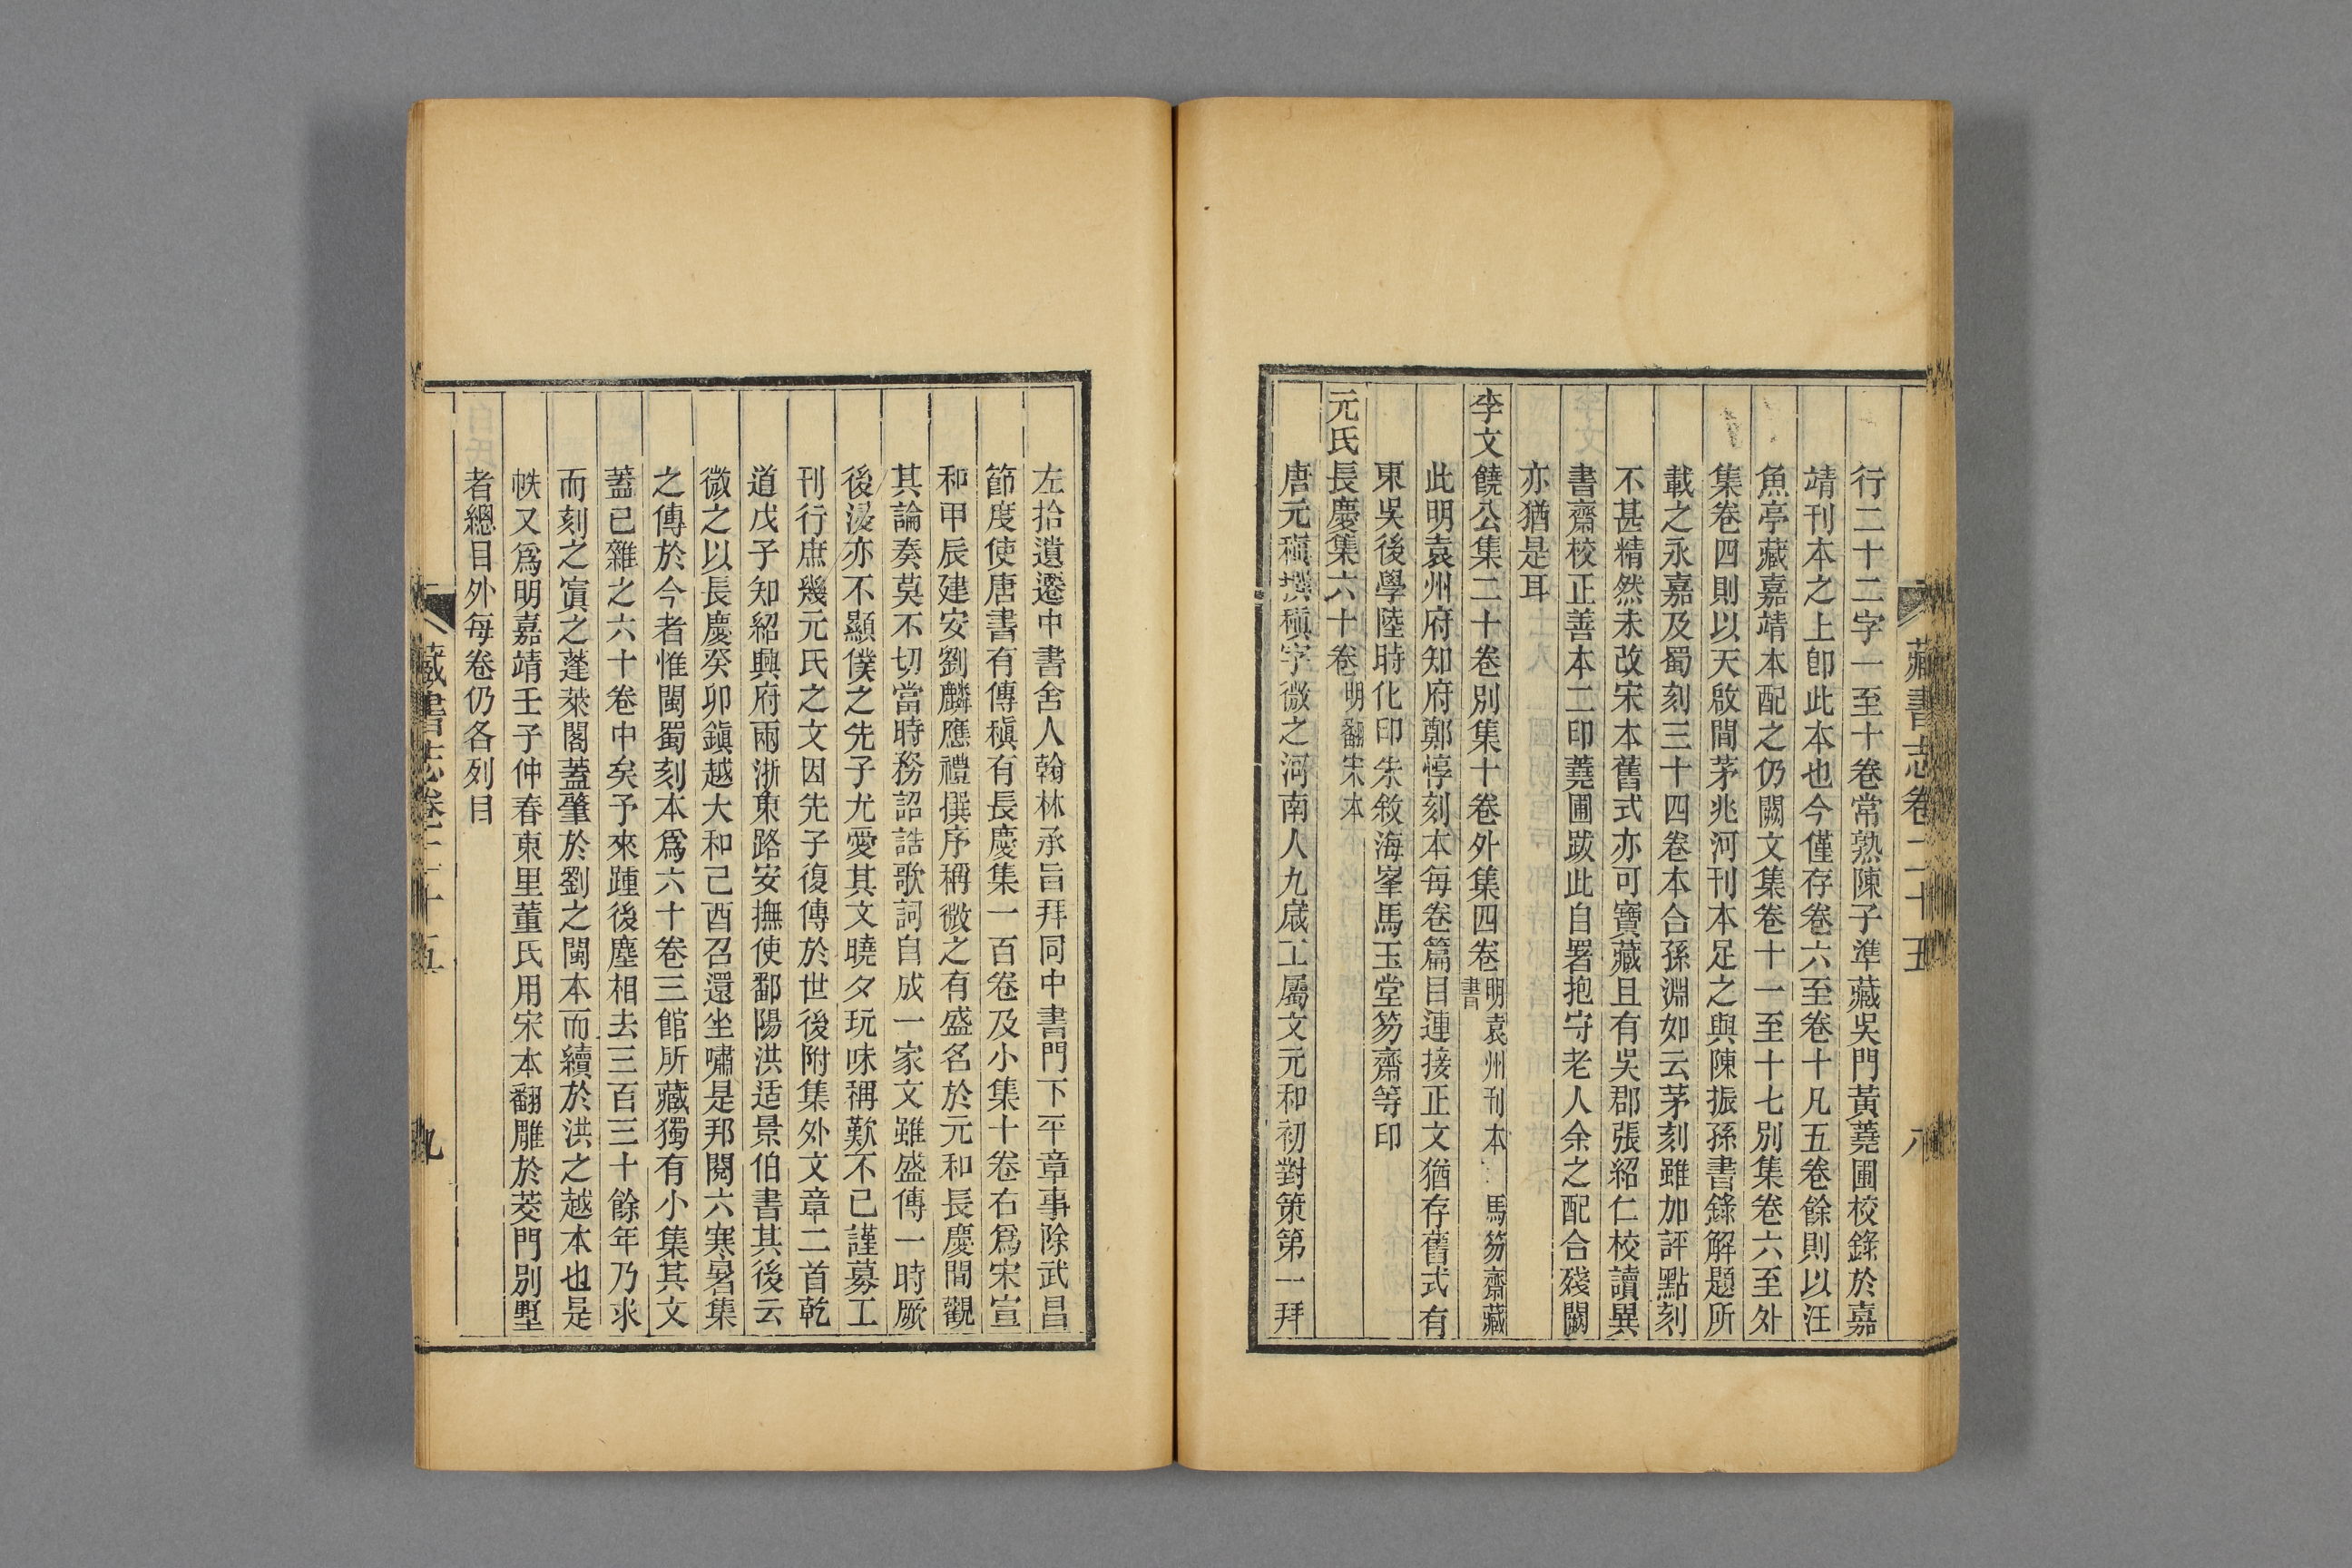 藏書志卷二十五
八
行二十二字一至十卷常熟陳子準藏吳門黃蕘圃校錄於嘉
靖刊本之上卽此本也今僅存卷六至卷十凡五卷餘則以汪
魚亭藏嘉靖本配之仍闕文集卷十一至十七別集卷六至外
集卷四則以天啟間茅兆河刊本足之與陳振孫書錄解題所
載之永嘉及蜀刻三十四卷本合孫淵如云茅刻雖加評點刻
不甚精然未改宋本舊式亦可寶藏且有吳郡張紹仁校讀異
書齋校正善本二印蕘圃跋此自署抱守老人余之配合殘闕
亦猶是耳
李文饒公集二十卷別集十卷外集四卷明袁州刊本 馬笏齋藏
書
此明袁州府知府鄭惇刻本每卷篇目連接正文猶存舊式有
東吳後學陸時化印朱敘海峯馬玉堂笏齋等印
元氏長慶集六十卷明翻宋本
唐元稹撰稹字微之河南人九歲工屬文元和初對策第一拜
左拾遺遷中書舍人翰林承旨拜同中書門下平章事除武昌
節度使唐書有傳稹有長慶集一百卷及小集十卷右爲宋宣
和甲辰建安劉麟應禮撰序稱微之有盛名於元和長慶間觀
其論奏莫不切當時務詔誥歌詞自成一家文雖盛傳一時厥
後浸亦不顯僕之先子尤愛其文曉夕玩味稱歎不已謹募工
刊行庶幾元氏之文因先子復傳於世後附集外文章二首乾
道戊子知紹興府兩浙東路安撫使鄱陽洪适景伯書其後云
微之以長慶癸卯鎮越大和己酉召還坐嘯是邦閱六寒暑集
之傳於今者惟閩蜀刻本爲六十卷三館所藏獨有小集其文
蓋已雜之六十卷中矣予來踵後塵相去三百三十餘年乃求
而刻之寘之蓬萊閣蓋肇於劉之閩本而續於洪之越本也是
帙又爲明嘉靖壬子仲春東里董氏用宋本翻雕於茭門別墅
者總目外每卷仍各列目
藏書志卷二十五
九